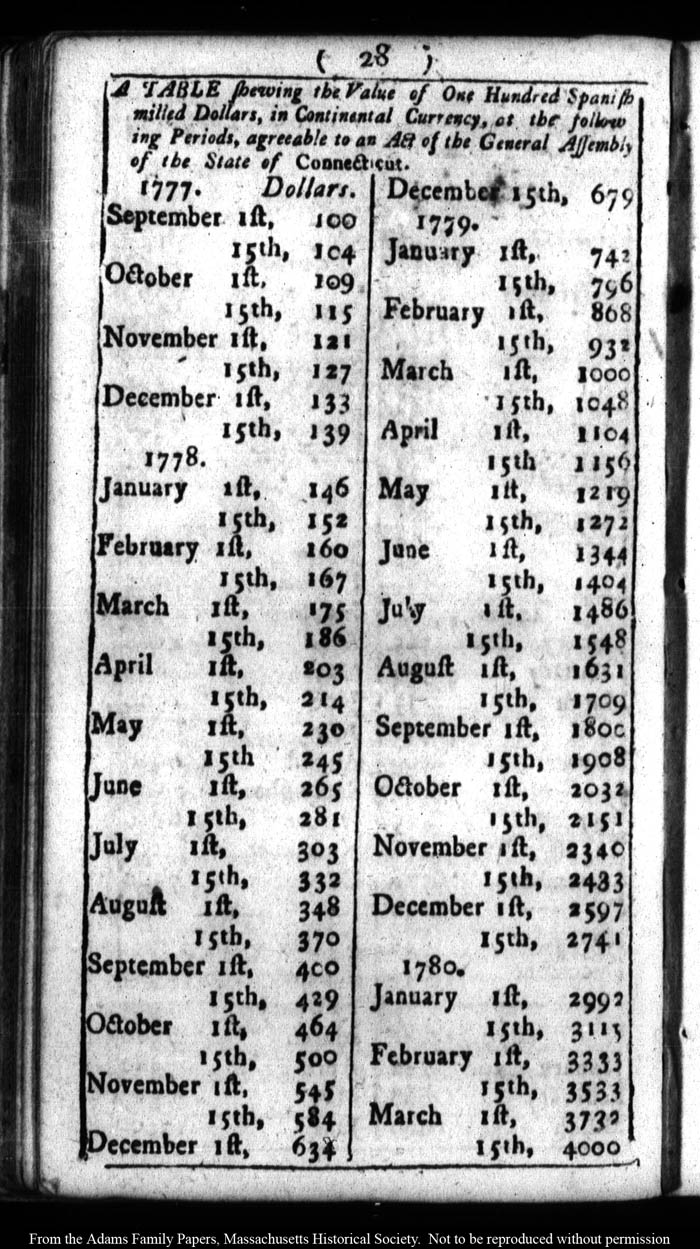 ( 28 )
A TABLE ſhewing the Value of One Hundred Spaniſh
milled Dollars, in Continental Currency, at the follow
ing Periods, agreeable to an Act of the General Aſſembly
of the State of Connecticut.
1777. Dollars.
September 1ſt, 100
15th, 104
October 1ſt, 109
15th, 115
November 1ſt, 121
15th, 127
December 1ſt, 133
15th, 139
1778.
January 1ſt, 146
15th, 152
February 1ſt, 160
15th, 167
March 1ſt, 175
15th, 186
April 1ſt, 203
15th, 214
May 1ſt, 230
15th 245
June 1ſt, 265
15th, 281
July 1ſt, 303
15th, 332
Auguſt 1ſt, 348
15th, 370
September 1ſt, 400
15th, 429
October 1ſt, 464
15th, 500
November 1ſt, 545
15th, 584
December 1ſt, 634
December 15th, 679
1779.
January 1ſt, 742
15th, 796
February 1ſt, 868
15th, 932
March 1ſt, 1000
15th, 1048
April 1ſt, 1104
15th 1156
May 1ſt, 1219
15th, 1272
June 1ſt, 1344
15th, 1404
July 1ſt, 1486
15th, 1548
Auguſt 1ſt, 1631
15th, 1709
September 1ſt, 1800
15th, 1908
October 1ſt, 2032
15th, 2151
November 1ſt, 2340
15th, 2433
December 1ſt, 2597
15th, 2741
1780.
January 1ſt, 2992
15th, 3115
February 1ſt, 3333
15th, 3533
March 1ſt, 3732
15th, 4000
From the Adams Family Papers, Massachusetts Historical Society. Not to be reproduced without permission